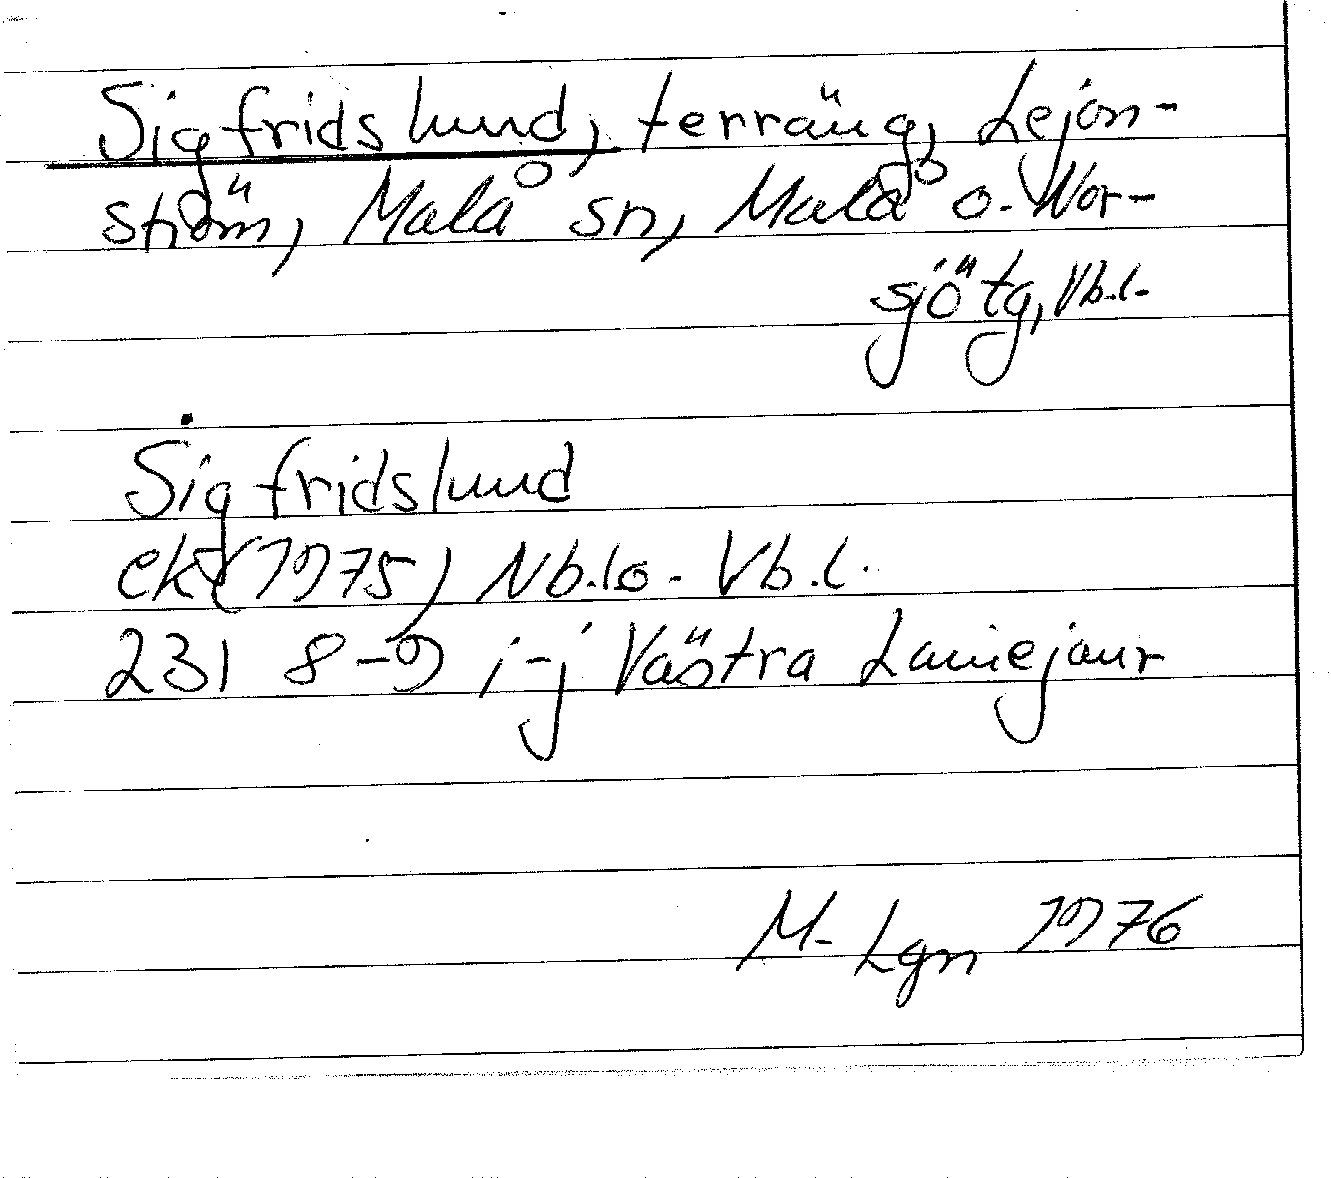 Sigfridslund, terräng, Lejon-
ström, Malå sn, Malå o. Nor-
sjö tg, Vb.l.
Sigfridslund
ek (1975) Nb.l o. Vb.l.
231 8-9 i-j Västra Lainejaur
M. Lgn 1976